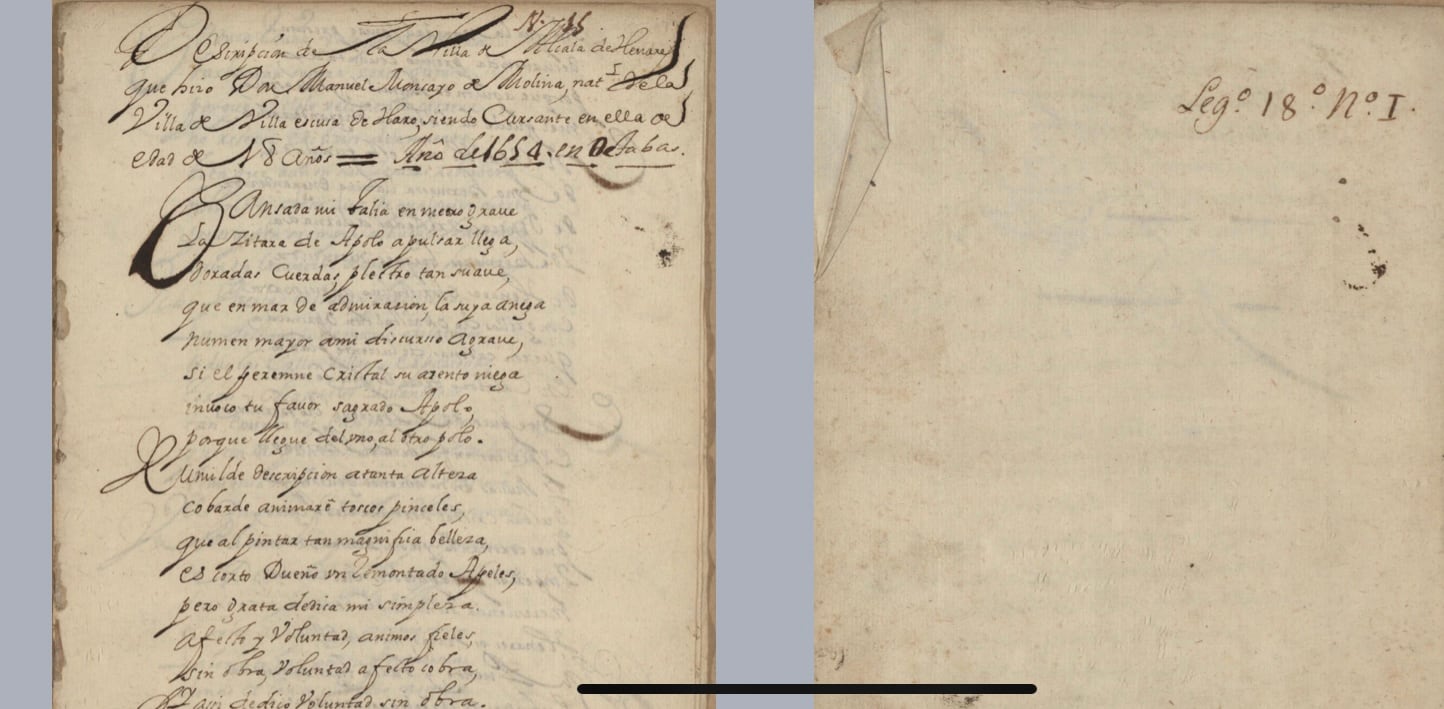 N. 11
Descripción de la Villa de Alcala de Henares
que hizo Don Manuel Monsayo de Molina, natl de la
Villa de Villa escusa de Haro, siendo Cursante en ella de
edad de 18 años = Año de 1654. en Octabas.
Cansada mi Talia en metro grave
La Zitara de Apolo a pulsar llega,
doradas Cuerdas, plectro tan suave,
que en mar de admirasion, la suya anega
Numen mayor a mi discurso agrave,
si el peremne Cristal su acento niega
invoco tu favor sagrado Apolo,
porque llegue del uno, al otro polo.
Humilde descripcion a tanta alteza
cobarde animaré toscos pinceles,
que al pintar tan magnifica belleza,
es corto Dueño un Remontado Apeles,
pero grata dedica mi simpleza.
afecto y Voluntad, animos fieles,
sin obra, Voluntad afecto cobra,
Y asi dedico Voluntad sin obra.
Lego. 18o. No. I.